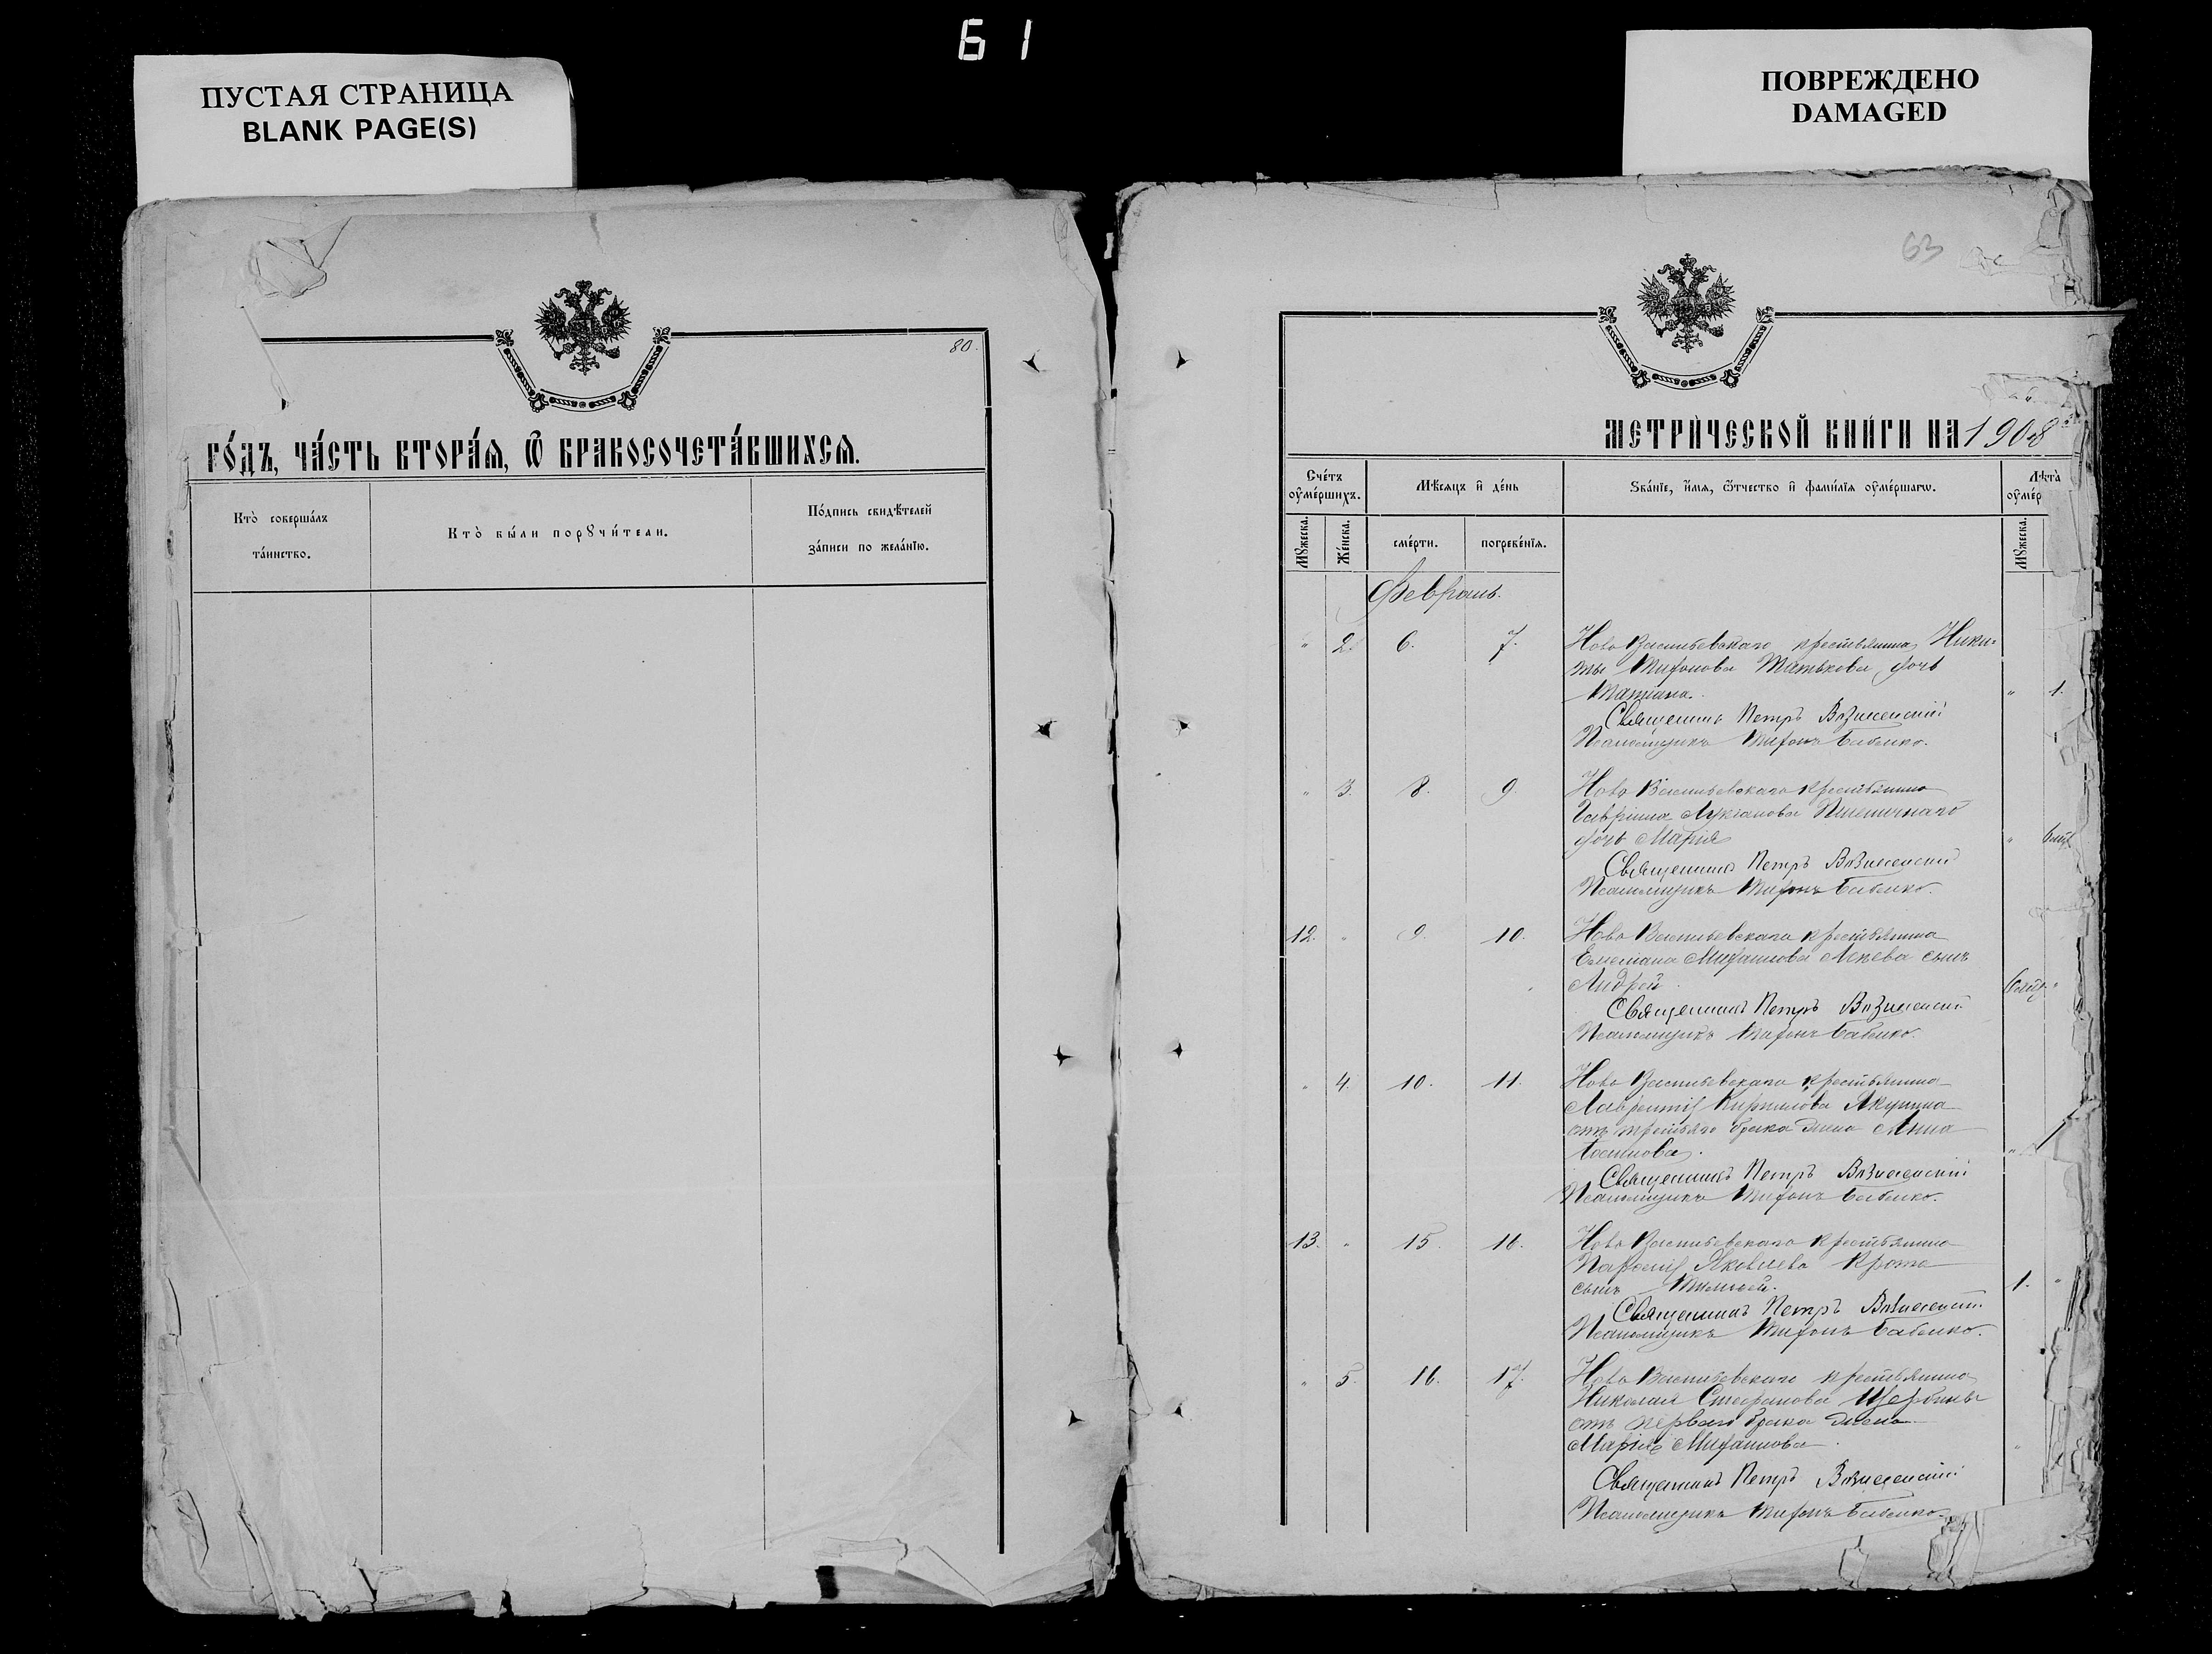 61
ПУСТАЯ СТРАНИЦА
BLANK PAGE(S)
ПОВРЕЖДЕНО
DAMAGED
80.
го́дъ, ча́сть втора́ѧ, ѿ бракосочета́вшихсѧ.
Кто̀ соверша́лъ
та́инство.
Кто̀ бы́ли порꙋчи́тели.
По́дпись свидѣ́телей
за́писи по жела́нїю.
63
метри́ческой кни́ги на 1908
Сче́тъ
оу҆ме́ршихъ.
Мѣ́сяцъ и҆ де́нь
Зва́нїе, и҆́мѧ, ѻ҆́тчество и҆ фами́лїѧ оу҆ме́ршагѡ.
Лѣ́та
оу҆ме́р
Мꙋ́жеска.
Же́нска.
сме́рти.
погребе́нїѧ.
Мꙋ́жеска.
Февраль.
" 2. 6. 7. Ново Васильевскаго крестьянина Ники-
ты Тихонова дочь
Татіана. " 1.
Священникъ Петръ Вознесенскій
Псаломщикъ Тихонъ Бабенко.
" 3. 8. 9. Ново Васильевскаго крестьянина
Гавріила Лукіанова Пшеничнаго
дочь Марія "
Священникъ Петръ Вознесенскій
Псаломщикъ Тихонъ Бабенко.
12. " 9. 10. Ново Васильевскаго крестьянина
Емеліана Михаилова сынъ
Андрей "
Священникъ Петръ Вознесенскій
Псаломщикъ Тихонъ Бабенко.
" 4. 10. 11. Ново Васильевскаго крестьянина
Лаврентія Кирилова Якунина
отъ третьяго брака жена Анна
"
Священникъ Петръ Вознесенскій
Псаломщикъ Тихонъ Бабенко.
13. " 15. 16. Ново Васильевскаго крестьянина
Яковлева Крота
сынъ 1. "
Священникъ Петръ Вознесенскій
Псаломщикъ Тихонъ Бабенко.
" 5. 16. 17. Ново Васильевскаго крестьянина
Николая Стефанова Щербины
отъ перваго брака жена
Марія Михаилова. "
Священникъ Петръ Вознесенскій
Псаломщикъ Тихонъ Бабенко.